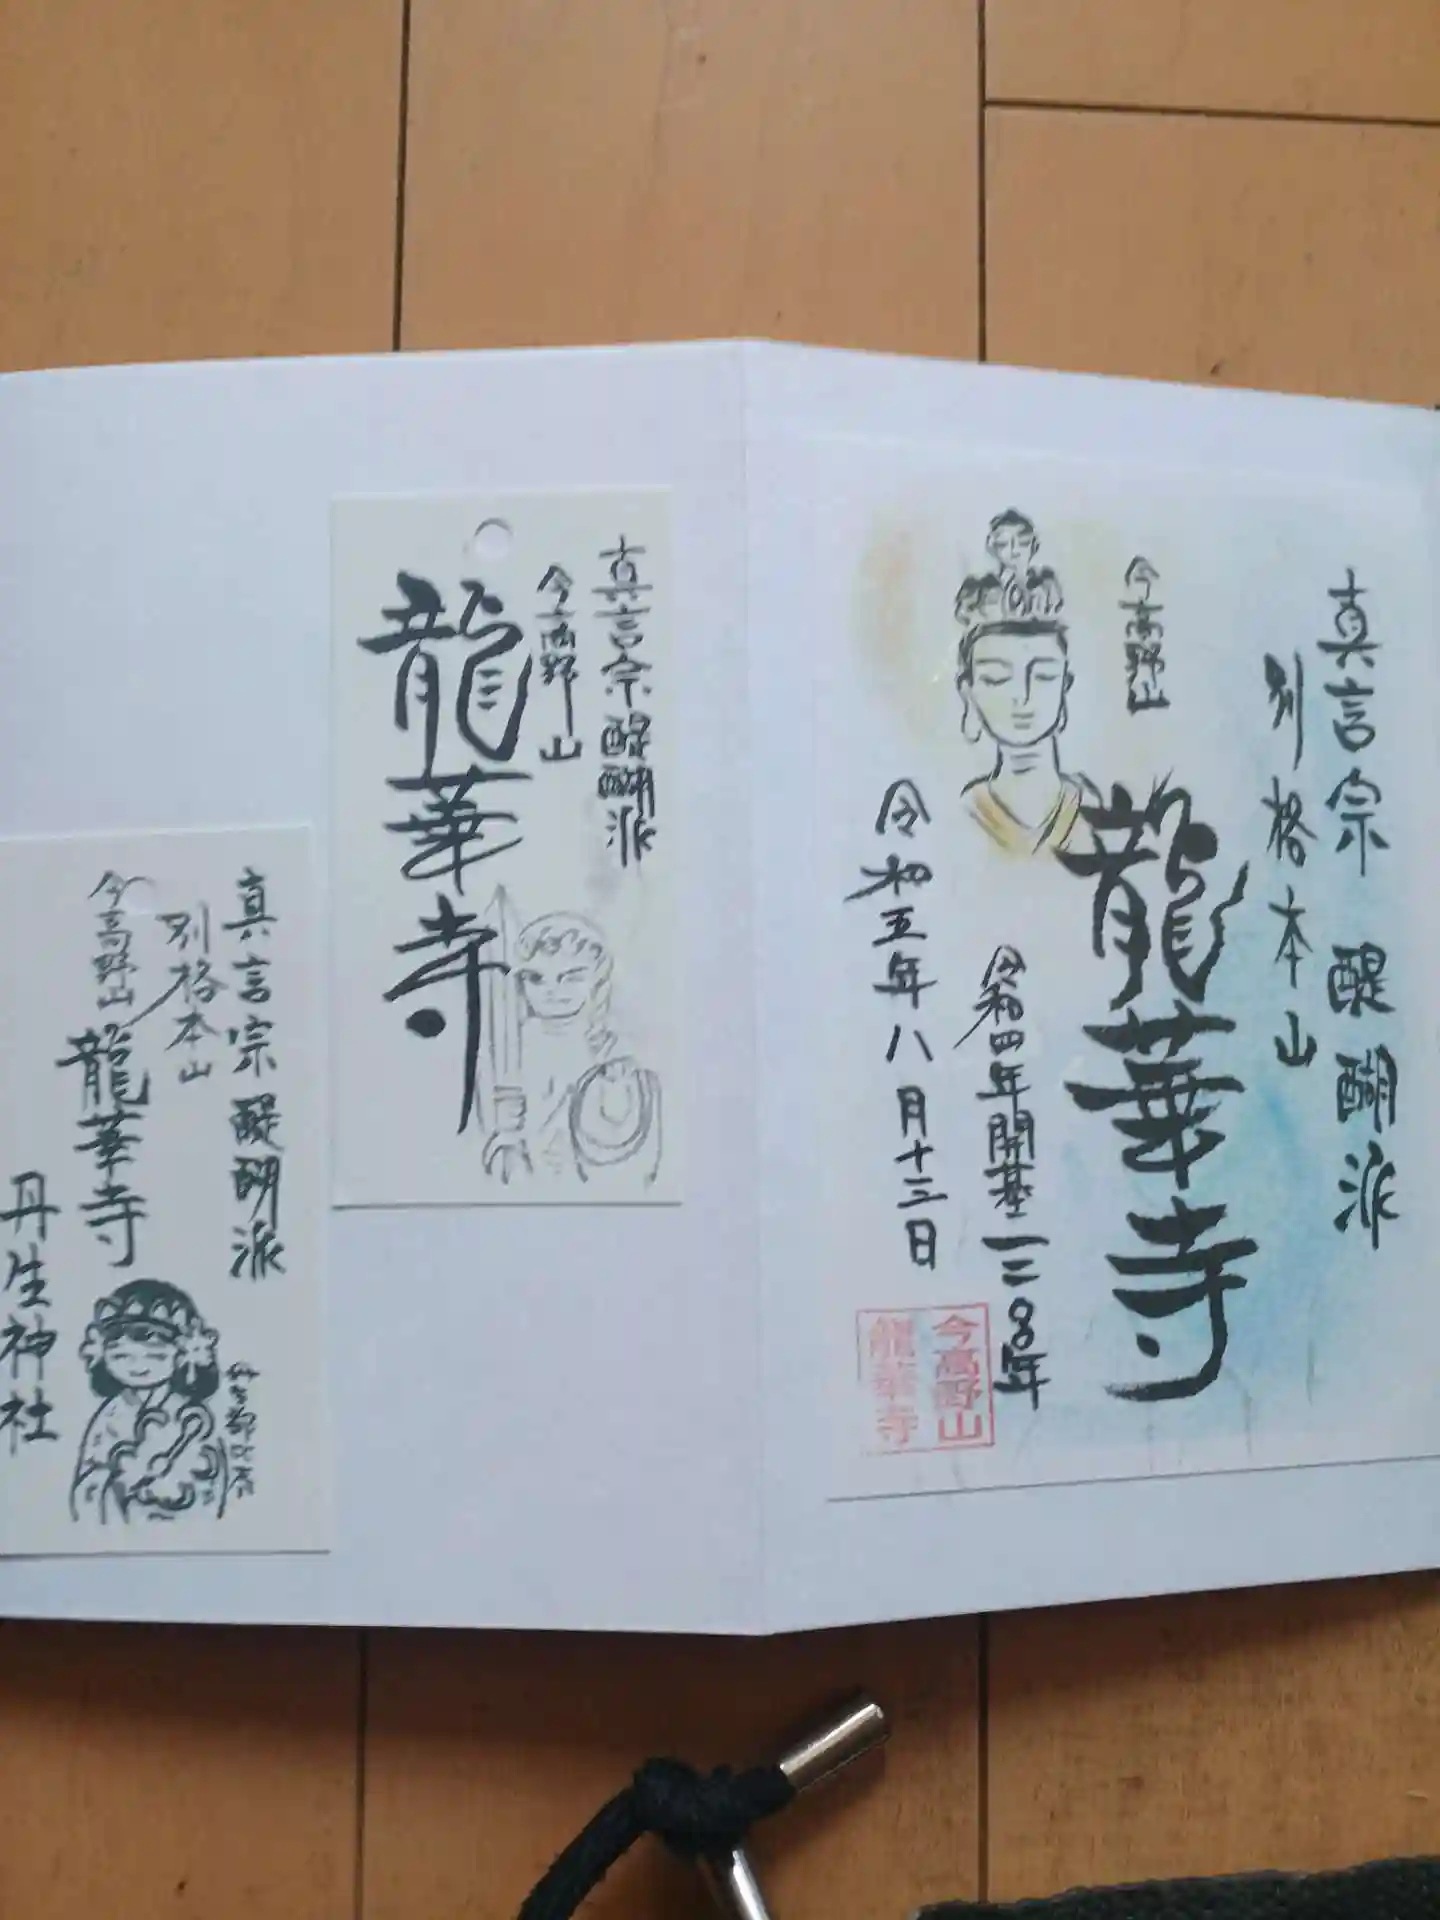 真言宗 醍醐派
別格本山
今高野山
龍華寺
令和四年開基一二〇〇年
令和五年八月十三日
今高野山
龍華寺
真言宗醍醐派
今高野山
龍華寺
真言宗醍醐派
別格本山
今高野山
龍華寺
丹生神社